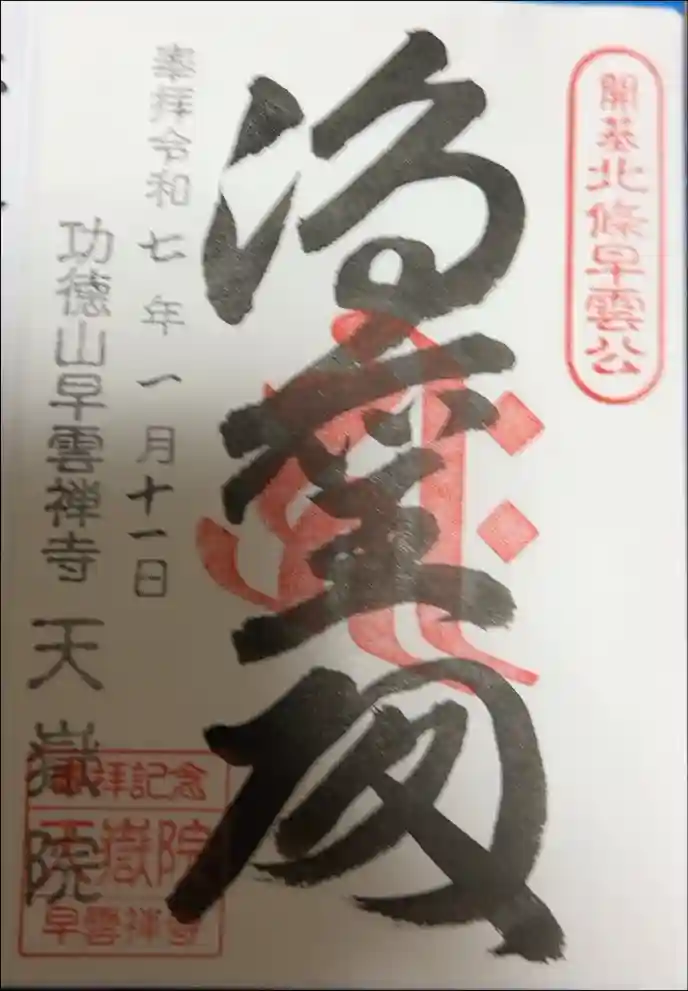 開基北條早雲公
奉拝令和七年一月十一日
功徳山早雲禅寺 天嶽院
拝記念
天嶽院
早雲禅寺